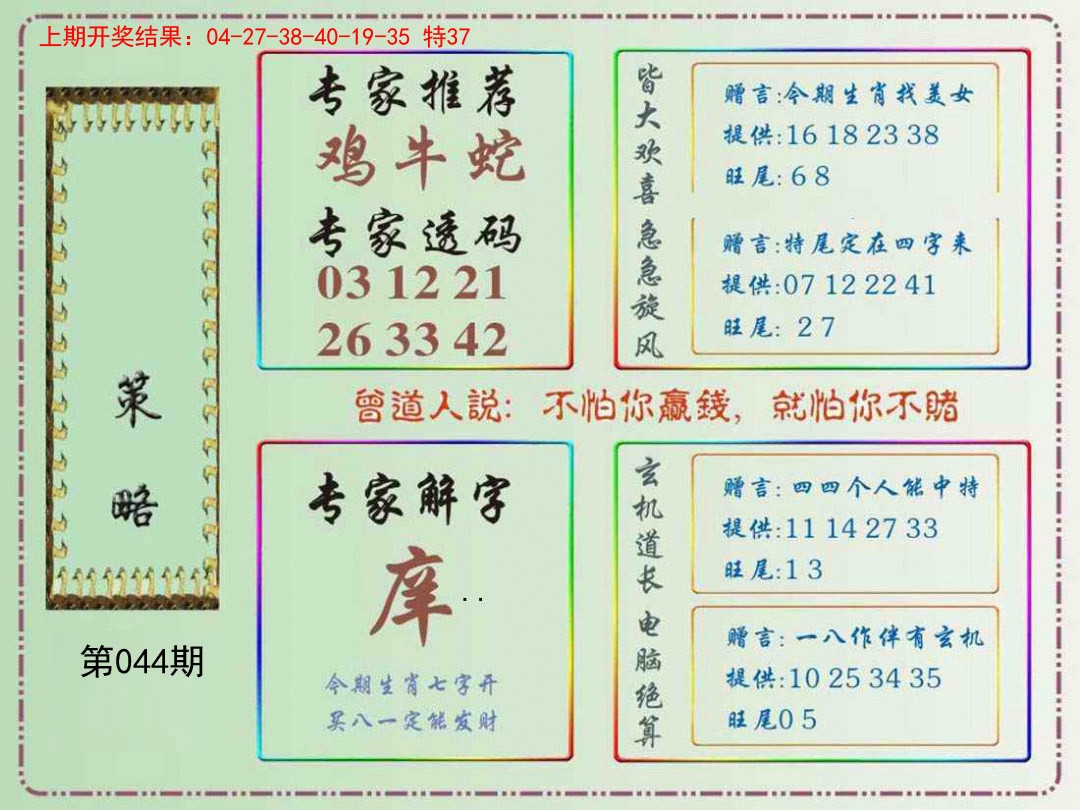 上期开奖结果：04-27-38-40-19-35 特37
策略
第044期
专家推荐
鸡牛蛇
专家透码
03 12 21
26 33 42
皆大欢喜
赠言:今期生肖找美女
提供:16 18 23 38
旺尾: 6 8
急急旋风
赠言:特尾定在四字来
提供:07 12 22 41
旺尾: 2 7
曾道人説：不怕你赢錢，就怕你不賭
专家解字
庠..
今期生肖七字开
买八一定能发财
玄机道长
赠言: 四四个人能中特
提供:11 14 27 33
旺尾:1 3
电脑绝算
赠言: 一八作伴有玄机
提供:10 25 34 35
旺尾0 5